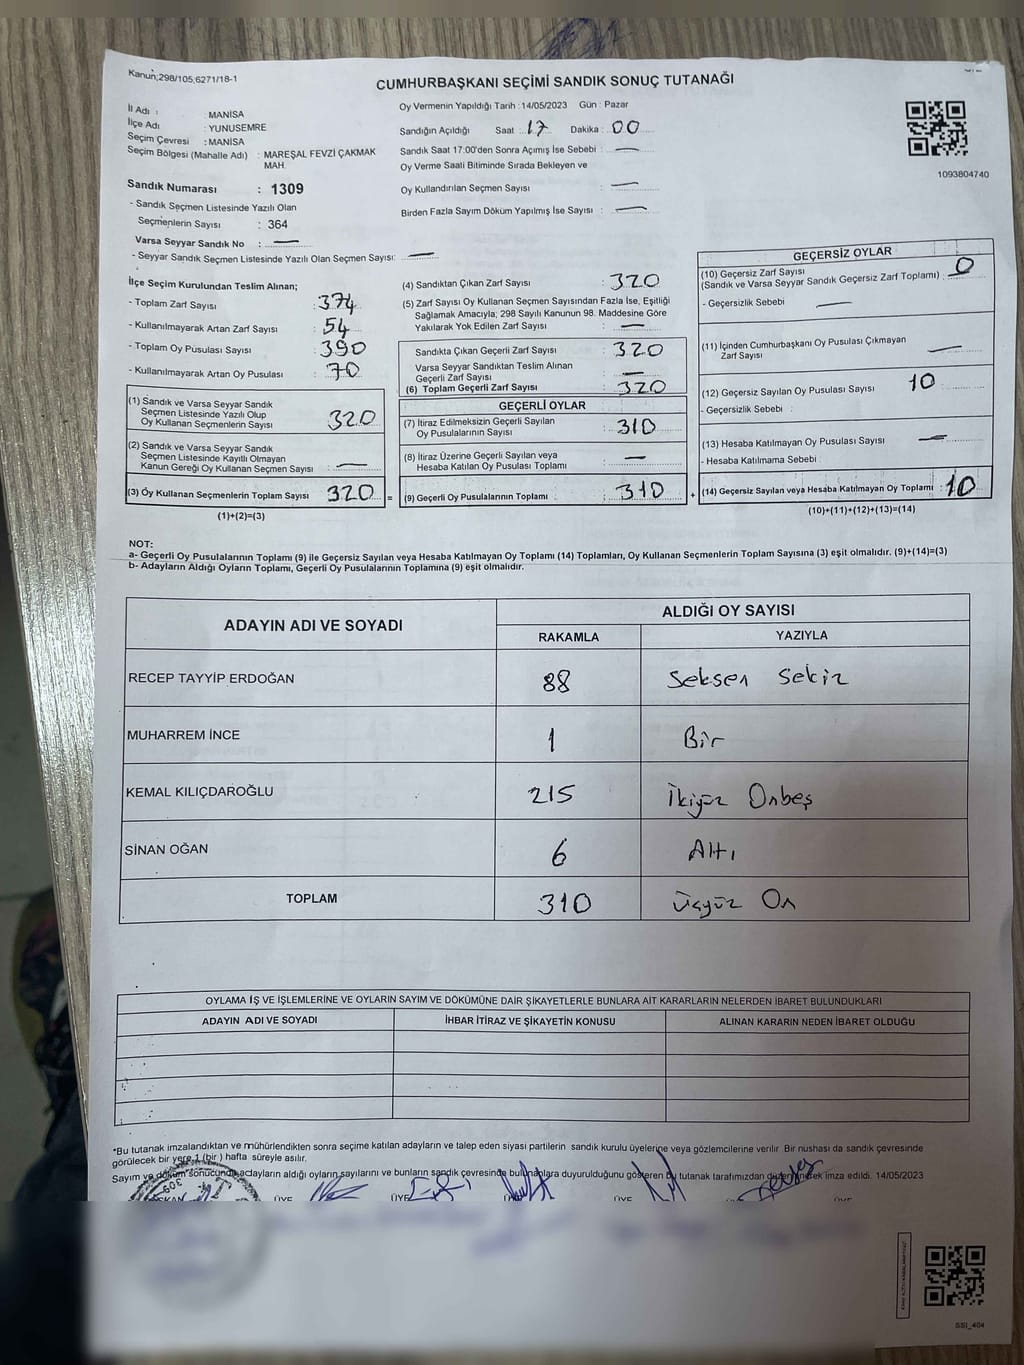 Kanun;298/105;6271/18-1
CUMHURBAŞKANI SEÇİMİ SANDIK SONUÇ TUTANAĞI
İl Adı : MANİSA
İlçe Adı : YUNUSEMRE
Seçim Çevresi : MANİSA
Seçim Bölgesi (Mahalle Adı) : MAREŞAL FEVZİ ÇAKMAK
MAH.
Sandık Numarası : 1309
- Sandık Seçmen Listesinde Yazılı Olan
Seçmenlerin Sayısı : 364
Varsa Seyyar Sandık No : —
- Seyyar Sandık Seçmen Listesinde Yazılı Olan Seçmen Sayısı: —
Oy Vermenin Yapıldığı Tarih : 14/05/2023 Gün : Pazar
Sandığın Açıldığı Saat : 17 Dakika : 00
Sandık Saat 17:00'den Sonra Açımış İse Sebebi : —
Oy Verme Saati Bitiminde Sırada Bekleyen ve
Oy Kullandırılan Seçmen Sayısı : —
Birden Fazla Sayım Döküm Yapılmış İse Sayısı : —
1093804740
İlçe Seçim Kurulundan Teslim Alınan;
- Toplam Zarf Sayısı : 374
- Kullanılmayarak Artan Zarf Sayısı : 54
- Toplam Oy Pusulası Sayısı : 390
- Kullanılmayarak Artan Oy Pusulası : 70
(1) Sandık ve Varsa Seyyar Sandık
Seçmen Listesinde Yazılı Olup
Oy Kullanan Seçmenlerin Sayısı : 320
(2) Sandık ve Varsa Seyyar Sandık
Seçmen Listesinde Kayıtlı Olmayan
Kanun Gereği Oy Kullanan Seçmen Sayısı : —
(3) Oy Kullanan Seçmenlerin Toplam Sayısı : 320 =
(1)+(2)=(3)
(4) Sandıktan Çıkan Zarf Sayısı : 320
(5) Zarf Sayısı Oy Kullanan Seçmen Sayısından Fazla İse, Eşitliği
Sağlamak Amacıyla; 298 Sayılı Kanunun 98. Maddesine Göre
Yakılarak Yok Edilen Zarf Sayısı : —
Sandıkta Çıkan Geçerli Zarf Sayısı : 320
Varsa Seyyar Sandıktan Teslim Alınan
Geçerli Zarf Sayısı : —
(6) Toplam Geçerli Zarf Sayısı : 320
GEÇERLİ OYLAR
(7) İtiraz Edilmeksizin Geçerli Sayılan
Oy Pusulalarının Sayısı : 310
(8) İtiraz Üzerine Geçerli Sayılan veya
Hesaba Katılan Oy Pusulası Toplamı : —
(9) Geçerli Oy Pusulalarının Toplamı : 310 +
GEÇERSİZ OYLAR
(10) Geçersiz Zarf Sayısı
(Sandık ve Varsa Seyyar Sandık Geçersiz Zarf Toplamı) : 0
- Geçersizlik Sebebi : —
(11) İçinden Cumhurbaşkanı Oy Pusulası Çıkmayan
Zarf Sayısı : —
(12) Geçersiz Sayılan Oy Pusulası Sayısı : 10
- Geçersizlik Sebebi :
(13) Hesaba Katılmayan Oy Pusulası Sayısı : —
- Hesaba Katılmama Sebebi :
(14) Geçersiz Sayılan veya Hesaba Katılmayan Oy Toplamı : 10
(10)+(11)+(12)+(13)=(14)
NOT:
a- Geçerli Oy Pusulalarının Toplamı (9) ile Geçersiz Sayılan veya Hesaba Katılmayan Oy Toplamı (14) Toplamları, Oy Kullanan Seçmenlerin Toplam Sayısına (3) eşit olmalıdır. (9)+(14)=(3)
b- Adayların Aldığı Oyların Toplamı, Geçerli Oy Pusulalarının Toplamına (9) eşit olmalıdır.
ADAYIN ADI VE SOYADI ALDIĞI OY SAYISI
RAKAMLA YAZIYLA
RECEP TAYYİP ERDOĞAN 88 Seksen Sekiz
MUHARREM İNCE 1 Bir
KEMAL KILIÇDAROĞLU 215 İkiyüz Onbeş
SİNAN OĞAN 6 Altı
TOPLAM 310 Üçyüz On
OYLAMA İŞ VE İŞLEMLERİNE VE OYLARIN SAYIM VE DÖKÜMÜNE DAİR ŞİKAYETLERLE BUNLARA AİT KARARLARIN NELERDEN İBARET BULUNDUKLARI
ADAYIN ADI VE SOYADI İHBAR İTİRAZ VE ŞİKAYETİN KONUSU ALINAN KARARIN NEDEN İBARET OLDUĞU
*Bu tutanak imzalandıktan ve mühürlendikten sonra seçime katılan adayların ve talep eden siyasi partilerin sandık kurulu üyelerine veya gözlemcilerine verilir. Bir nushası da sandık çevresinde
görülecek bir yere 1 (bir) hafta süreyle asılır.
Sayım ve döküm sonucunda adayların aldığı oyların sayılarını ve bunların sandık çevresinde bulunanlara duyurulduğunu gösteren bu tutanak tarafımızdan düzenlenerek imza edildi. 14/05/2023
ÜYE ÜYE ÜYE
SSI_404